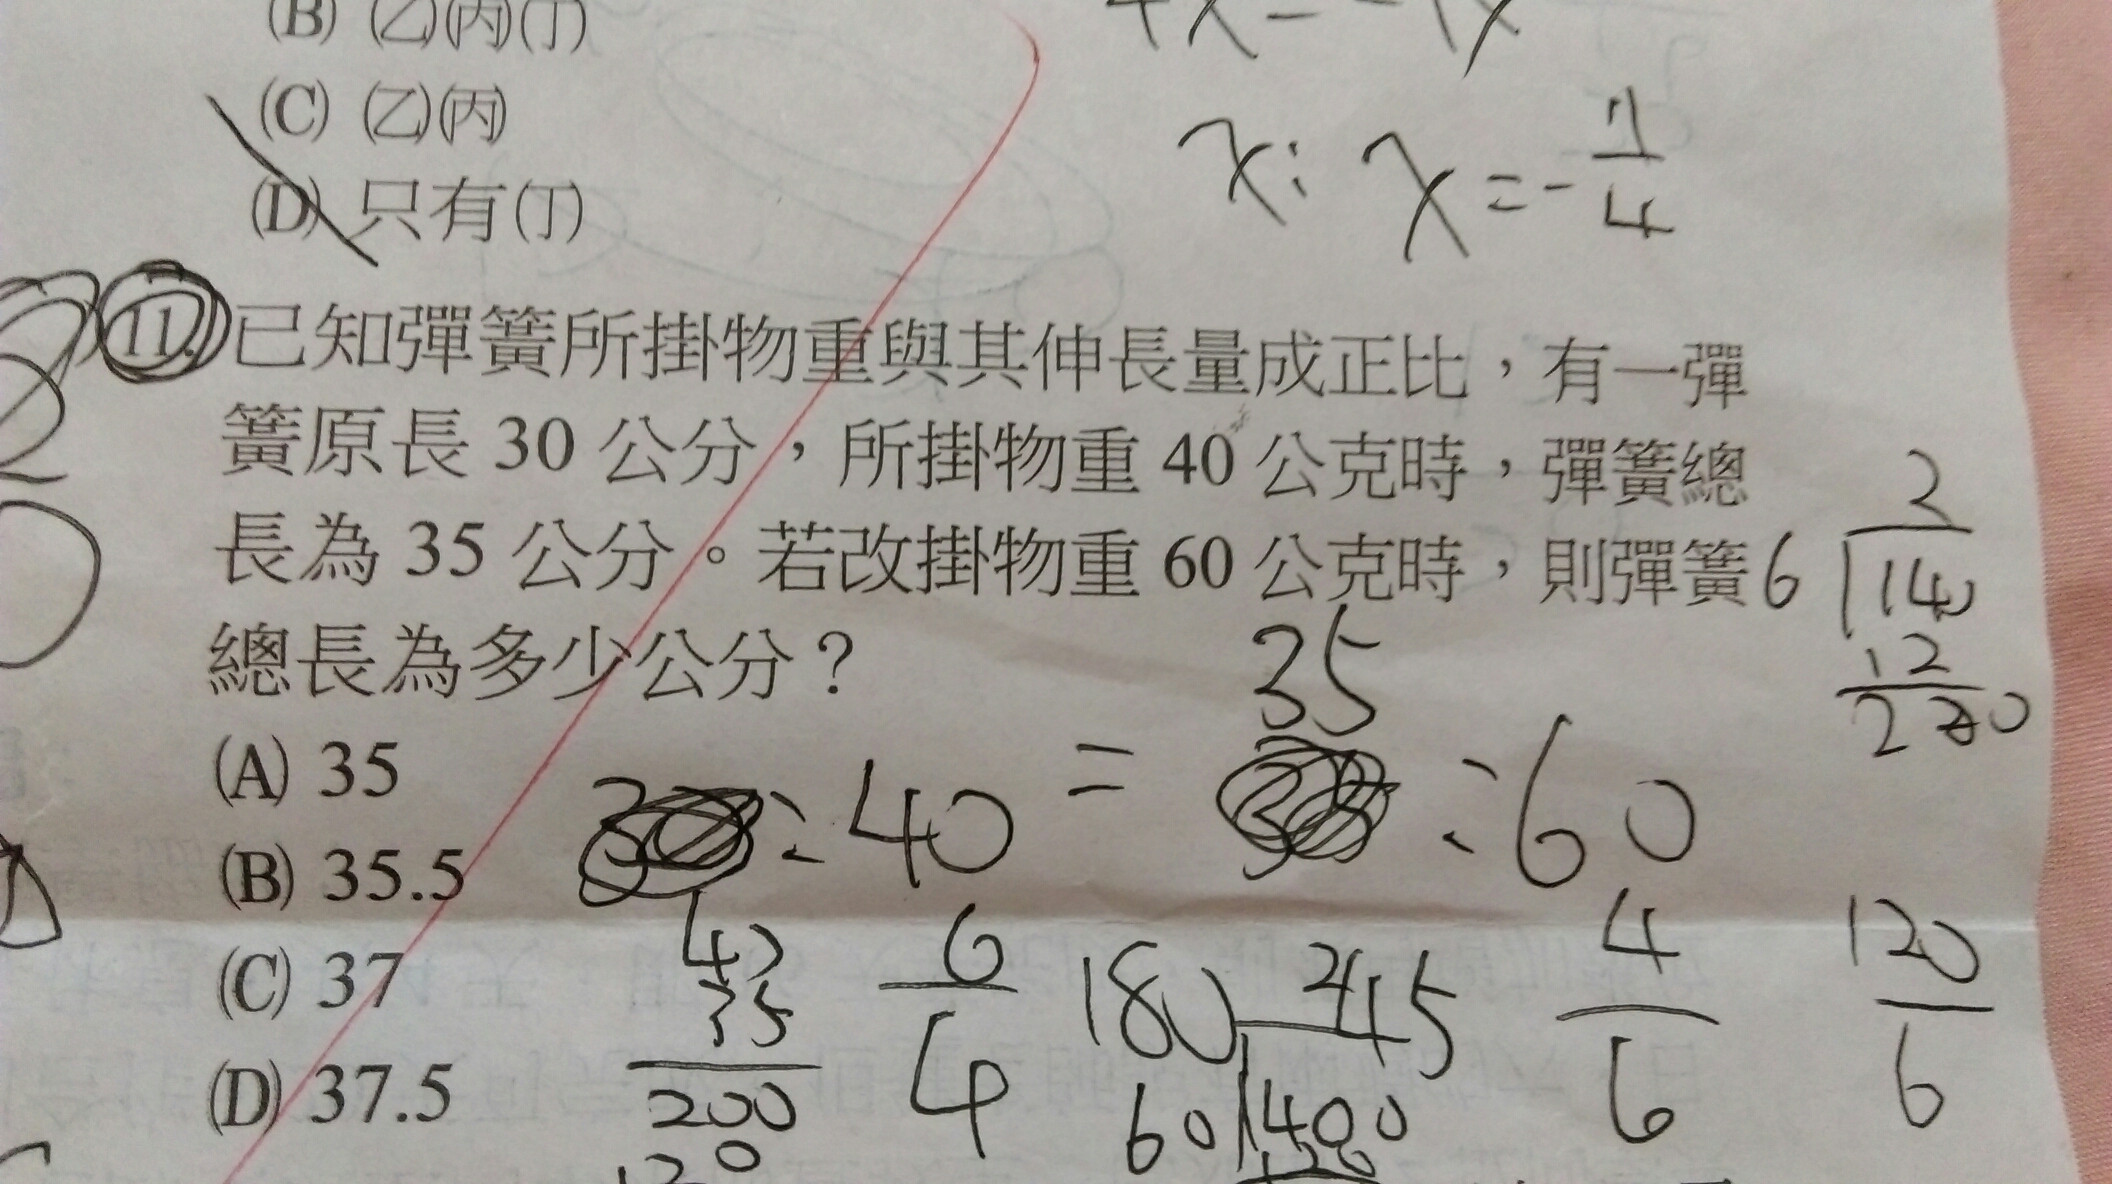 (B) (乙)(丙)(丁)
(C) (乙)(丙)
(D) 只有(丁)
x: x = -7/4
11. 已知彈簧所掛物重與其伸長量成正比，有一彈
簧原長 30 公分，所掛物重 40 公克時，彈簧總
長為 35 公分。若改掛物重 60 公克時，則彈簧
總長為多少公分？
(A) 35
(B) 35.5
(C) 37
(D) 37.5
35
: 40 = : 60
2
6 140
12
20
6/4
4/6
120/6
180
35
200
60